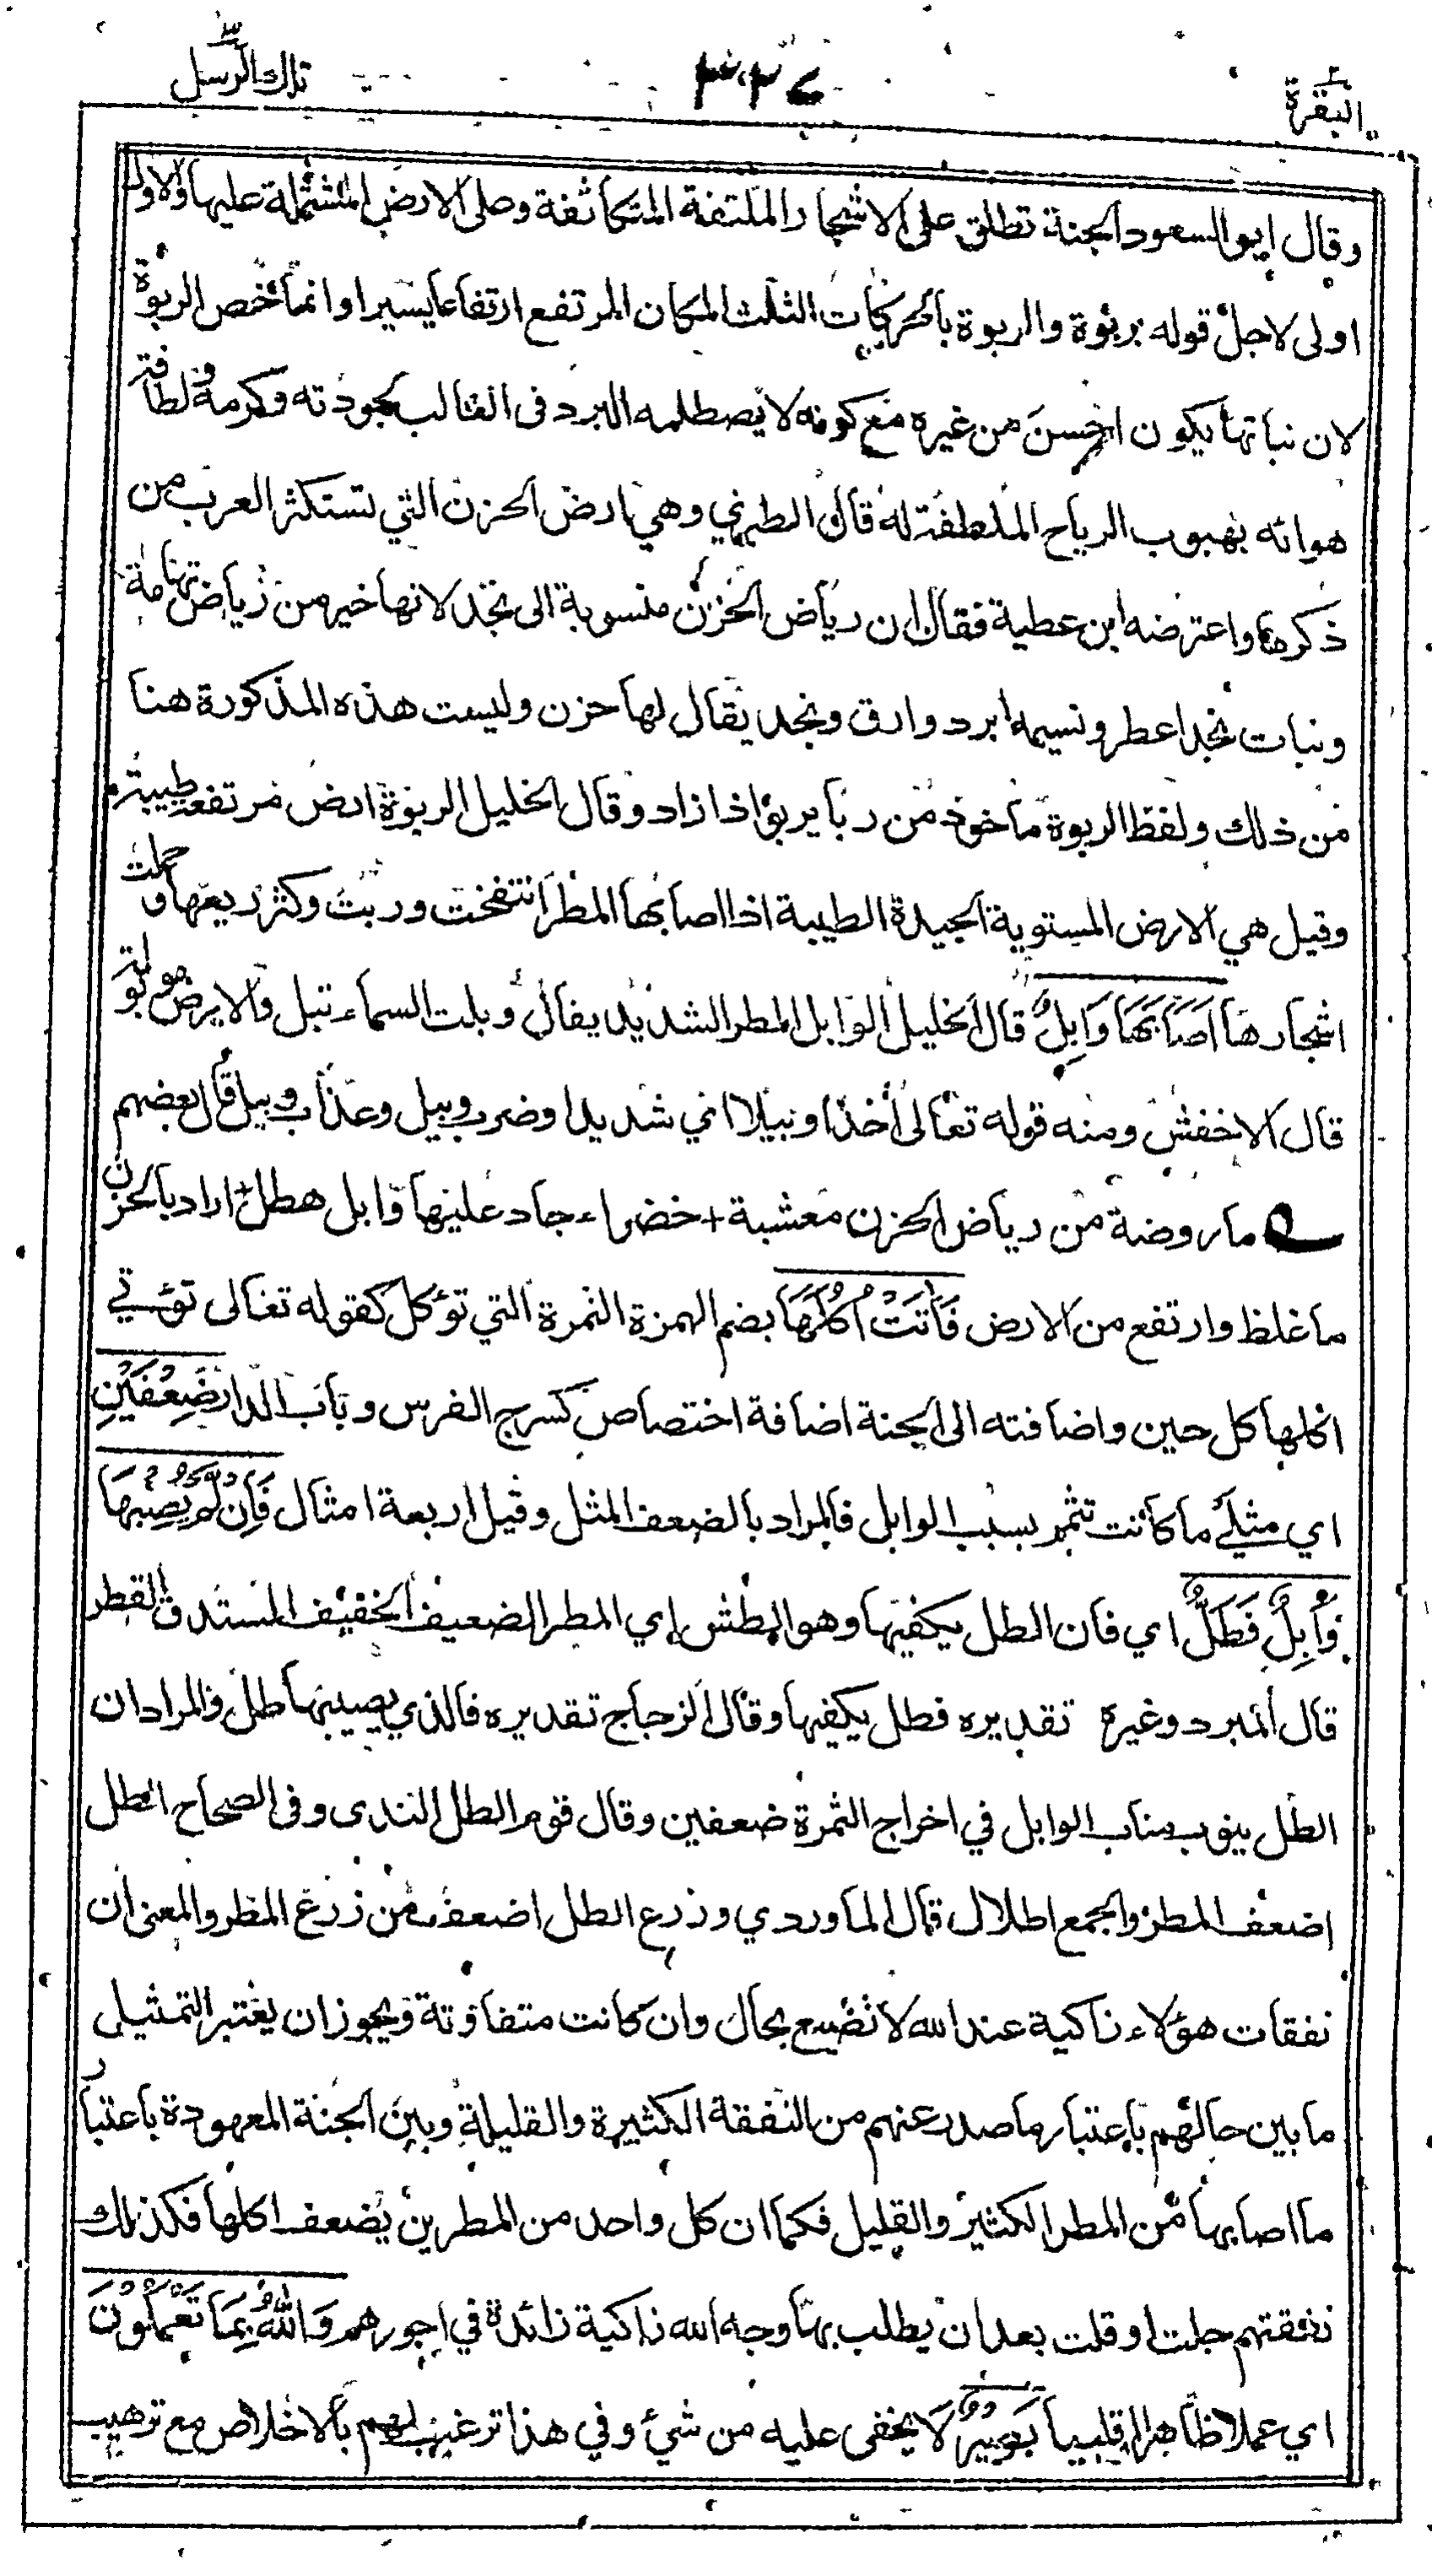 البقرة ٣٣٤ تلك الرسل
وقال ابو السعود الجنة تطلق على الاشجار الملتفة المتكاثفة وعلى الارض المشتملة عليها والاول
اولى لاجل قوله بربوة والربوة بالحركات الثلث المكان المرتفع ارتفاعا يسيرا وانما خص الربوة
لان نباتها يكون احسن من غيره مع كونه لا يصطلمه البرد فى الغالب بجودته وكرمه ولطافة
هوائه بهبوب الرياح الملطفة له قال الطبري وهي رياض الحزن التي تستكثر العرب من
ذكرها واعترضه ابن عطية فقال ان رياض الحزن منسوبة الى نجد لانها خير من رياض تهامة
ونبات نجد اعطر ونسيمه ابرد وارق ونجد يقال لها حزن وليست هذه المذكورة هنا
من ذلك ولفظ الربوة ماخوذ من ربا يربو اذا زاد وقال الخليل الربوة ارض مرتفعة طيبة
وقيل هي الارض المستوية الجيدة الطيبة اذا اصابها المطر انتفخت وربت وكثر ريعها وحملت
اشجارها اَصَابَهَا وَابِلٌ قال الخليل الوابل المطر الشديد يقال وبلت السماء تبل والارض موبولة
قال الاخفش ومنه قوله تعالى اخذا وبيلا اي شديدا وضرب وبيل وعذاب وبيل قال بعضهم
ما روضة من رياض الحزن معشبة + خضراء جاد عليها وابل هطل + اراد بالحزن
ما غلظ وارتفع من الارض فَاٰتَتْ اُكُلَهَا بضم الهمزة الثمرة التي تؤكل كقوله تعالى تؤتي
اكلها كل حين واضافته الى الجنة اضافة اختصاص كسرج الفرس وباب الدار ضِعْفَيْنِ
اي مثلي ما كانت تثمر بسبب الوابل فالمراد بالضعف المثل وقيل اربعة امثال فَاِنْ لَّمْ يُصِبْهَا
وَابِلٌ فَطَلٌّ اي فان الطل يكفيها وهو الطش اي المطر الضعيف الخفيف المستدق القطر
قال المبرد وغيره تقديره فطل يكفيها وقال الزجاج تقديره فالذي يصيبها طل والمراد ان
الطل ينوب مناب الوابل في اخراج الثمرة ضعفين وقال قوم الطل الندى وفى الصحاح الطل
اضعف المطر والجمع اطلال قال الماوردي وزرع الطل اضعف من زرع المطر والمعنى ان
نفقات هؤلاء زاكية عند الله لا تضيع بحال وان كانت متفاوتة ويجوز ان يعتبر التمثيل
ما بين حالهم باعتبار ما صدر عنهم من النفقة الكثيرة والقليلة وبين الجنة المعهودة باعتبار
ما اصابها من المطر الكثير والقليل فكما ان كل واحد من المطرين يضعف اكلها فكذلك
نفقتهم جلت او قلت بعد ان يطلب بها وجه الله زاكية زائدة في اجورهم وَاللّٰهُ بِمَا تَعْمَلُوْنَ
اي عملا ظاهرا او قلبيا بَصِيْرٌ لا يخفى عليه من شيء وفي هذا ترغيب لهم بالاخلاص مع ترهيب